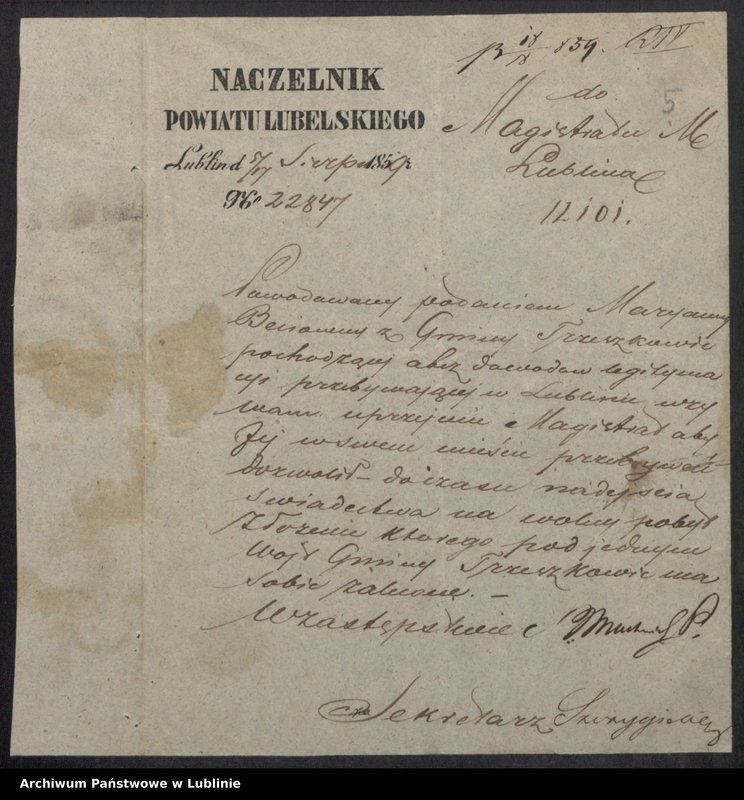 NACZELNIK
POWIATU LUBELSKIEGO
Lublin d 5/17 Sierpnia 1859 r
No 22847
859.
do
5
Magistratu M
Lublina
12101.
Powodowany podaniem Maryanny
z Gminy Trzeszkowic
pochodzącej a bez dowodow legityma
cyi przebywającej w Lublinie, wzy
wam uprzejmie Magistrat aby
Jej w swem mieście przebywać
dozwolił do czasu nadejścia
swiadectwa na wolny pobyt
złożenie ktorego pod jednym
Wojt Gminy Trzeszkowic ma
sobie zalecone. –
W zastępstwie
Sekretarz
Archiwum Państwowe w Lublinie